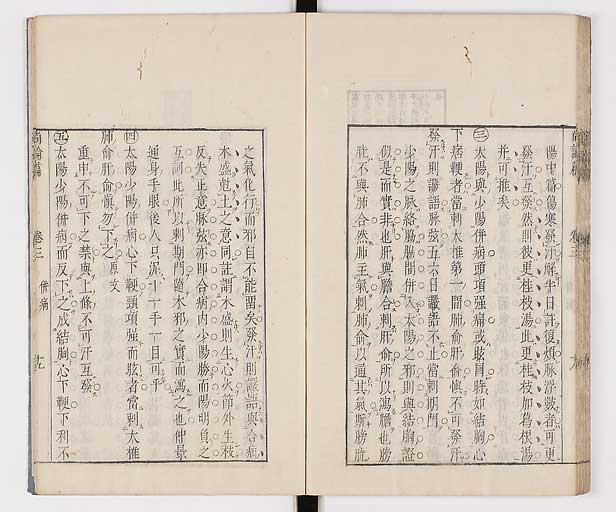 陽中篇傷寒發汗解半日許復煩脉浮數者可更
發汗互發然則彼更桂枝湯此更桂枝加葛根湯
并可推矣
三太陽與少陽併病頭項強痛或眩冒時如結胸心
下痞鞕者當刺大椎第一間肺俞肝俞慎不可發汗
發汗則譫語脉弦五六日譫語不止當刺期門
少陽之脉絡脇腸間併入太陽之邪則與結胸證
似是而實非也肝與膽合刺肝俞所以瀉膽也膀
胱不與肺合然肺主氣刺肺俞以通其氣斯膀胱
之氣化行而邪自不能留矣發汗則譫語與合病
木盛剋土之意同註謂木盛則生心火節外生枝
反失正意脉弦亦即合病内少陽勝而陽明負之
互詞此所以刺期門隨木邪之實而瀉之也仲景
通身手眼後人只派一十一手一目可乎
四太陽少陽併病心下鞕頸項強而眩者當刺大椎
肺俞肝俞慎勿下之原文
重申不可下之禁與上條不可汗互發
五太陽少陽併病而反下之成結胸心下鞕下利不
尚論篇
卷三
併病